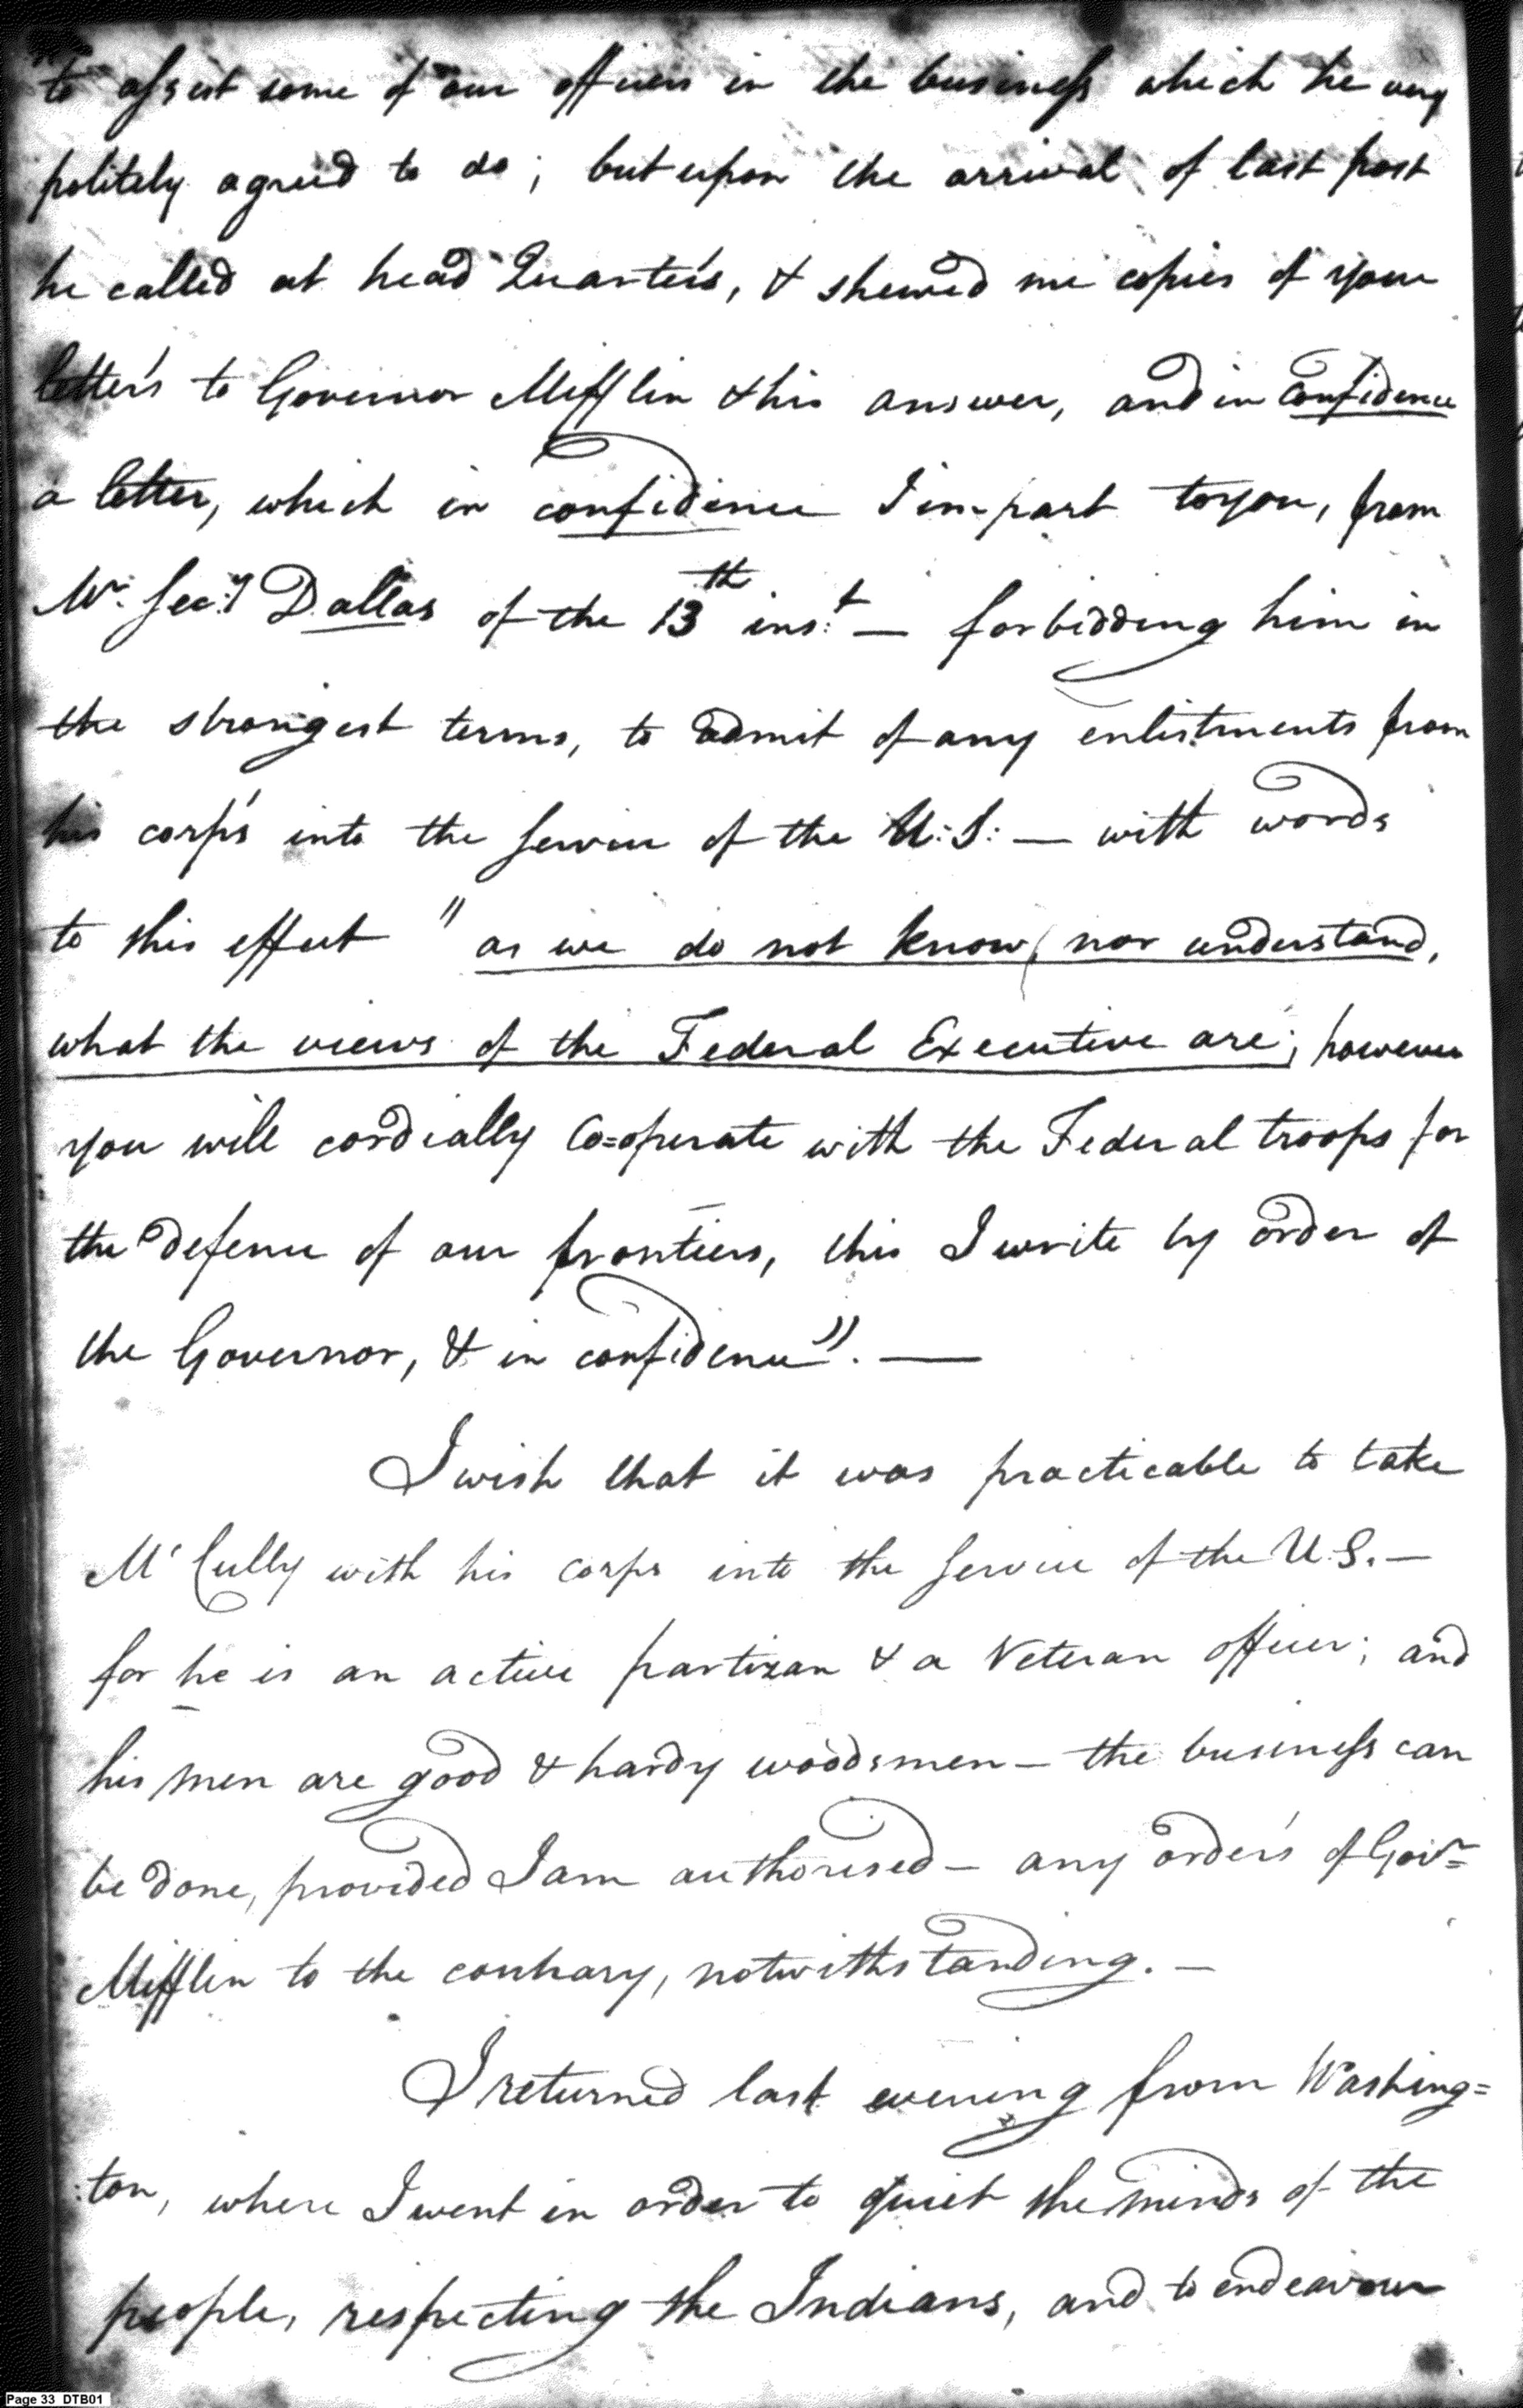 to assist some of our officers in the business which he very
politely agreed to do; but upon the arrival of last post
he called at head Quarter's, & shewed me copies of your
letter's to Governor Mifflin & his answer, and in confidence
a letter, which in confidence I impart to you, from
Mr. Secy Dallas of the 13th inst. — forbidding him in
the strongest terms, to admit of any enlistments from
his corp's into the service of the U: S: — with words
to this effect "as we do not know, nor understand,
what the views of the Federal Executive are; however
you will cordially Co=operate with the Federal troops for
the defence of our frontiers, this I write by order of
the Governor, & in confidence". —
I wish that it was practicable to take
Mc Cully with his corps into the service of the U.S. —
for he is an active partizan & a Veteran officer; and
his men are good & hardy woodsmen — the business can
be done, provided I am authorised — any order's of Govr=
Mifflin to the contrary, notwithstanding. —
I returned last evening from Washing=
:ton, where I went in order to quiet the minds of the
people, respecting the Indians, and to endeavour
Page 33 DTB01